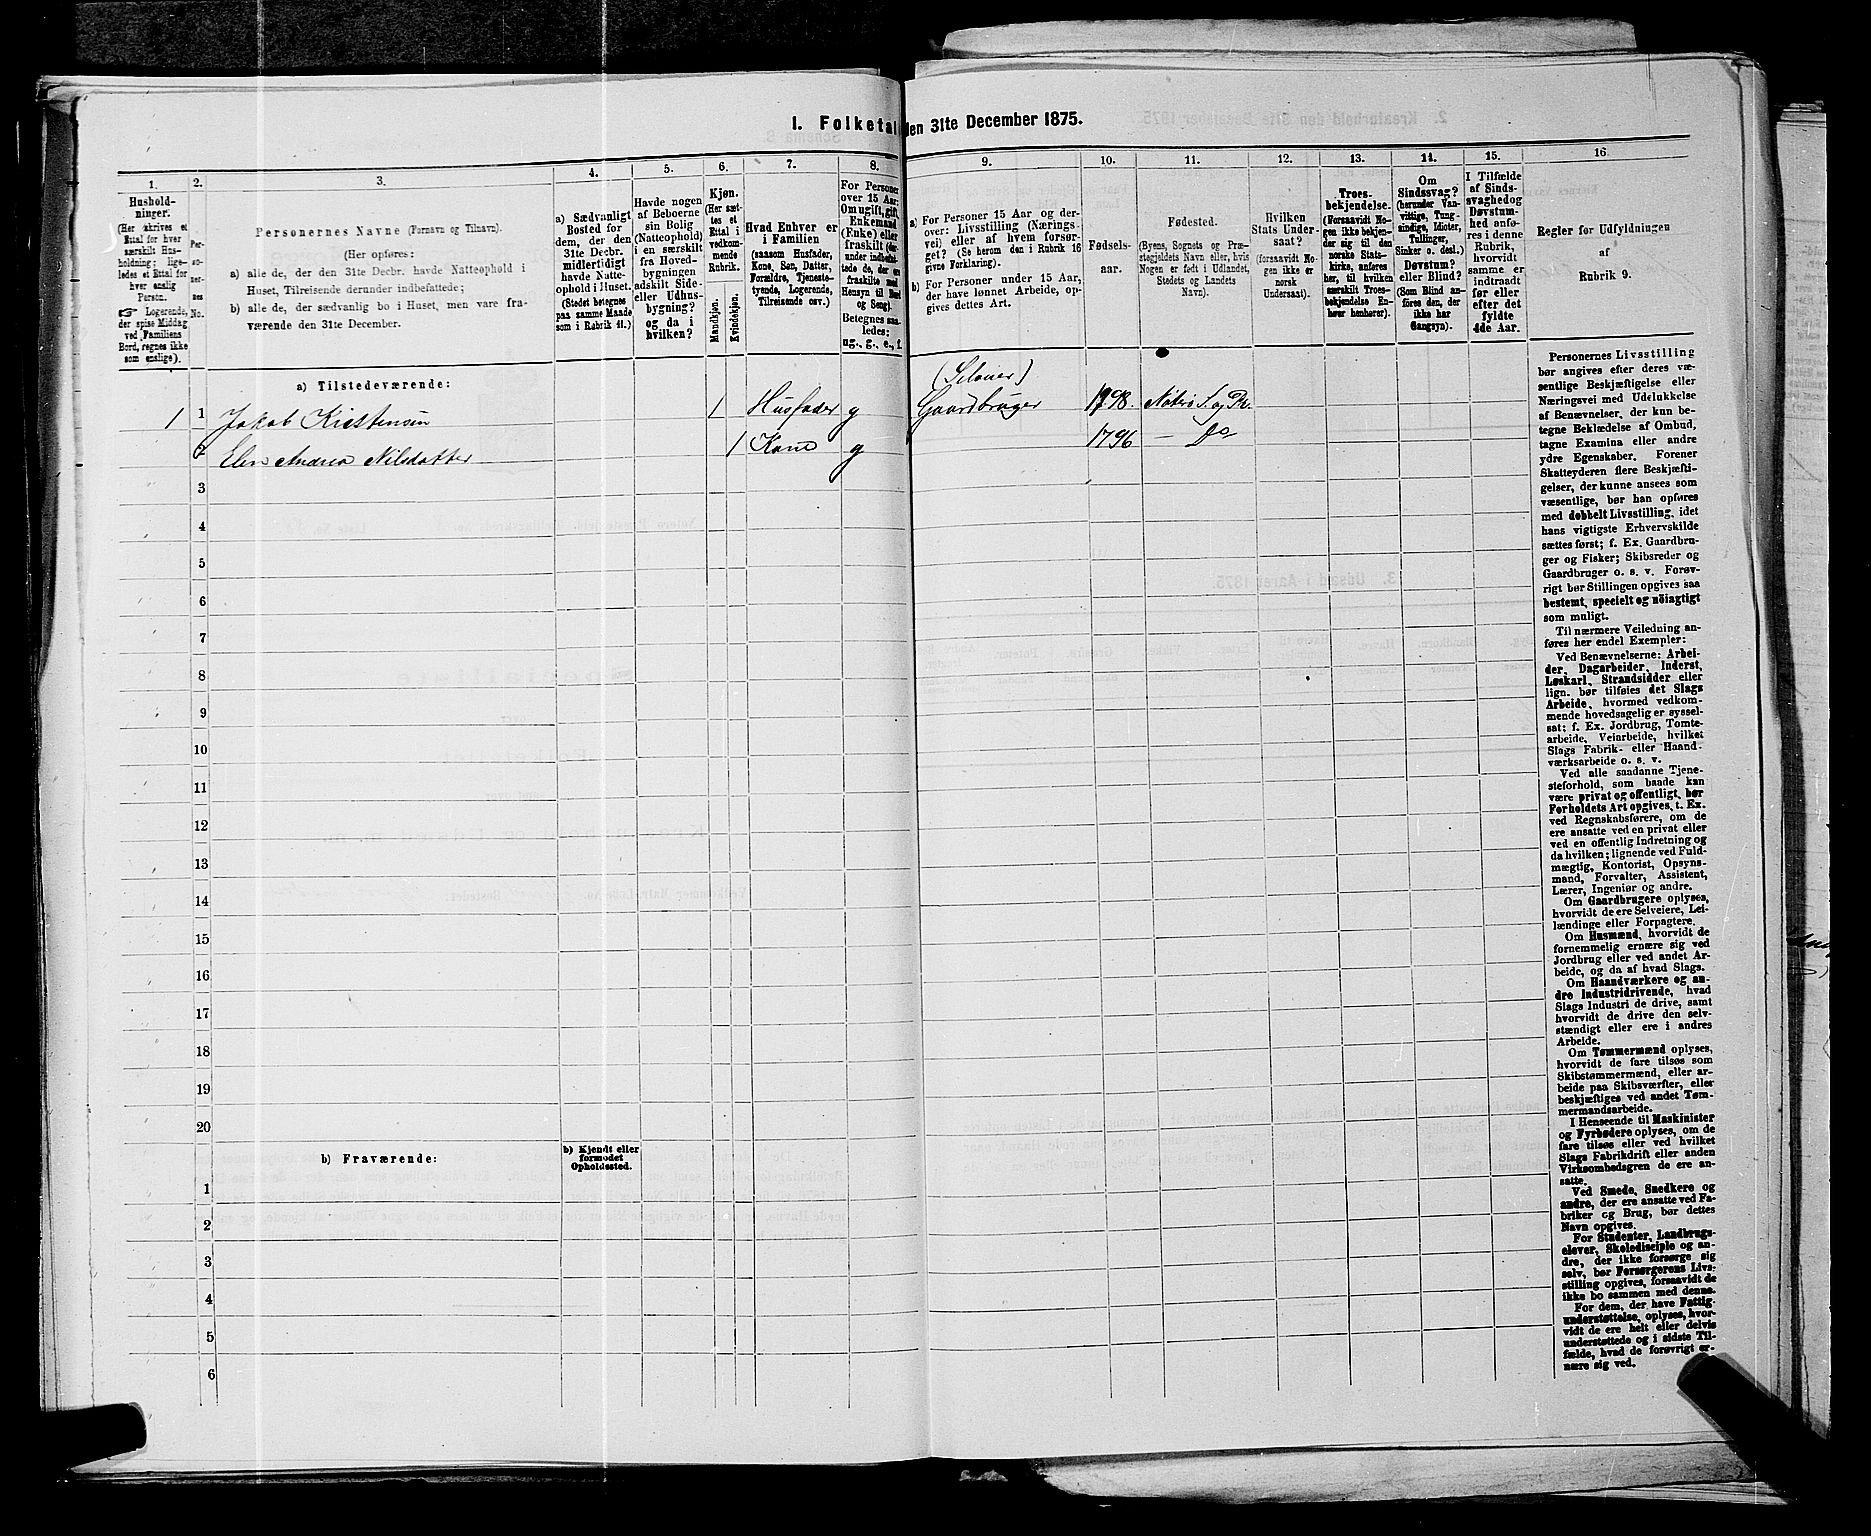 I. Folketal den 31te December 1875.
1.
2.
3.
4.
5.
6.
7.
8.
9.
10.
11.
12.
13.
14.
15.
16.
Hushold-
ninger.
(Her skrives et
Ettal for hver
særskilt Hus-
holdning; lige-
ledes et Ettal for
hver enslig
Person.
☞ Logerende,
der spise Middag
ved Familiens
Bord, regnes ikke
som enslige).
Per-
so-
ner-
nes
No.
Personernes Navne (Fornavn og Tilnavn).
(Her opføres:
a) alle de, der den 31te Decbr. havde Natteophold i
Huset, Tilreisende derunder indbefattede;
b) alle de, der sædvanlig bo i Huset, men vare fra-
værende den 31te December.
a) Sædvanligt
Bosted for
dem, der den
31te Decbr.
midlertidigt
havde Natte-
ophold i Huset.
(Stedet betegnes
paa samme Maade
som i Rubrik 11.)
Havde nogen
af Beboerne
sin Bolig
(Natteophold)
i en særskilt
fra Hoved-
bygningen
adskilt Side-
eller Udhus-
bygning?
og da i
hvilken?
Kjøn.
(Her sæt-
tes et
Ettal i
vedkom-
mende
Rubrik.
Mandkjøn.
Kvindekjøn.
Hvad Enhver er
i Familien
(saasom Husfader,
Kone, Søn, Datter,
Forældre, Tjeneste-
tyende, Logerende,
Tilreisende osv.).
For Personer
over 15 Aar:
Om ugift, gift,
Enkemand
(Enke) eller
fraskilt (der-
under indbefat-
tede de, der ere
fraskilte med
Hensyn til Bord
og Seng).
Betegnes saa-
ledes:
ug., g., e., f.
a) For Personer 15 Aar og der-
over: Livsstilling (Nærings-
vei) eller af hvem forsør-
get? (Se herom den i Rubrik 16
givne Forklaring).
b) For Personer under 15 Aar,
der have lønnet Arbeide, op-
gives dettes Art.
Fødsels-
aar.
Fødested.
(Byens, Sognets og Præ-
stegjeldets Navn eller, hvis
Nogen er født i Udlandet,
Stedets og Landets
Navn).
Hvilken
Stats Under-
saat?
(forsaavidt No-
gen ikke er
norsk
Undersaat).
Troes-
bekjendelse.
(Forsaavidt No-
gen ikke bekjen-
der sig til den
norske Stats-
kirke, anføres
her, til hvilken
særskilt Troes-
bekjendelse En-
hver henhører).
Om
Sindssvag?
(herunder Van-
vittige, Tung-
sindige, Idioter,
Tullinger,
Sinker o. desl.).
Døvstum?
eller Blind?
(Som Blind an-
føres den, der
ikke har
Gangsyn).
I Tilfælde
af Sinds-
svaghed og
Døvstum-
hed anfø-
res i denne
Rubrik,
hvorvidt
samme er
indtraadt
før eller
efter det
fyldte
4de Aar.
Regler for Udfyldningen
af
Rubrik 9.
a) Tilstedeværende:
1 1 Jakob Kristensen 1 Husfader g (Seleier) Gaardbruger 1798. Nøtterø S. og Pr.
2 Elen Andrea Nilsdatter 1 Kone g 1796 — Do
3
4
5
6
7
8
9
10
11
12
13
14
15
16
17
18
19
20
b) Fraværende:
b) Kjendt eller
formodet
Opholdssted.
1
2
3
4
5
6
Personernes Livsstilling
bør angives efter deres væ-
sentlige Beskjæftigelse eller
Næringsvei med Udelukkelse
af Benævnelser, der kun be-
tegne Beklædelse af Ombud,
tagne Examina eller andre
ydre Egenskaber. Forener
Skatteyderen flere Beskjæfti-
gelser, der kunne ansees som
væsentlige, bør han opføres
med dobbelt Livsstilling, idet
hans vigtigste Erhvervskilde
sættes først; f. Ex. Gaardbru-
ger og Fisker; Skibsreder og
Gaardbruger o. s. v. Forøv-
rigt bør Stillingen opgives saa
bestemt, specielt og nöiagtigt
som muligt.
Til nærmere Veiledning an-
føres her endel Exempler:
Ved Benævnelserne: Arbei-
der, Dagarbeider, Inderst,
Løskarl, Strandsidder eller
lign. bør tilføies det Slags
Arbeide, hvormed vedkom-
mende hovedsagelig er syssel-
sat; f. Ex. Jordbrug, Tomte-
arbeide, Veiarbeide, hvilket
Slags Fabrik- eller Haand-
værksarbeide o. s. v.
Ved alle saadanne Tjene-
steforhold, som baade kan
være privat og offentligt, bør
Forholdets Art opgives, t. Ex.
ved Regnskabsførere, om de
ere ansatte ved en privat eller
ved en offentlig Indretning og
da hvilken; lignende ved Fuld-
mægtig, Kontorist, Opsyns-
mand, Forvalter, Assistent,
Lærer, Ingeniør og andre.
Om Gaardbrugere oplyses,
hvorvidt de ere Selveiere, Lei-
lændinge eller Forpagtere.
Om Husmænd, hvorvidt de
fornemmelig ernære sig ved
Jordbrug eller ved andet Ar-
beide, og da af hvad Slags.
Om Haandværkere og an-
dre Industridrivende, hvad
Slags Industri de drive, samt
hvorvidt de drive den selv-
stændigt eller ere i andres
Arbeide.
Om Tømmermænd oplyses,
hvorvidt de fare tilsøs som
Skibstømmermænd, eller ar-
beide paa Skibsværfter, eller
beskjæftiges ved andet Tøm-
mermandsarbeide.
I Henseende til Maskinister
og Fyrbødere oplyses, om de
fare tilsøs eller ved hvilket
Slags Fabrikdrift eller anden
Virksomhedsgren de ere an-
satte.
Ved Smede, Snedkere og
andre, der ere ansatte ved Fa-
briker og Brug, bør dettes
Navn opgives.
For Studenter, Landbrugs-
elever, Skoledisciple og an-
dre, der ikke forsørge sig
selv, bør Forsørgerens Livs-
stilling opgives, forsaavidt de
ikke bo sammen med denne.
For dem, der have Fattig-
understøttelse, oplyses, hvor-
vidt de ere helt eller delvis
understøttede og i sidste Til-
fælde, hvad de forøvrigt er-
nære sig ved.